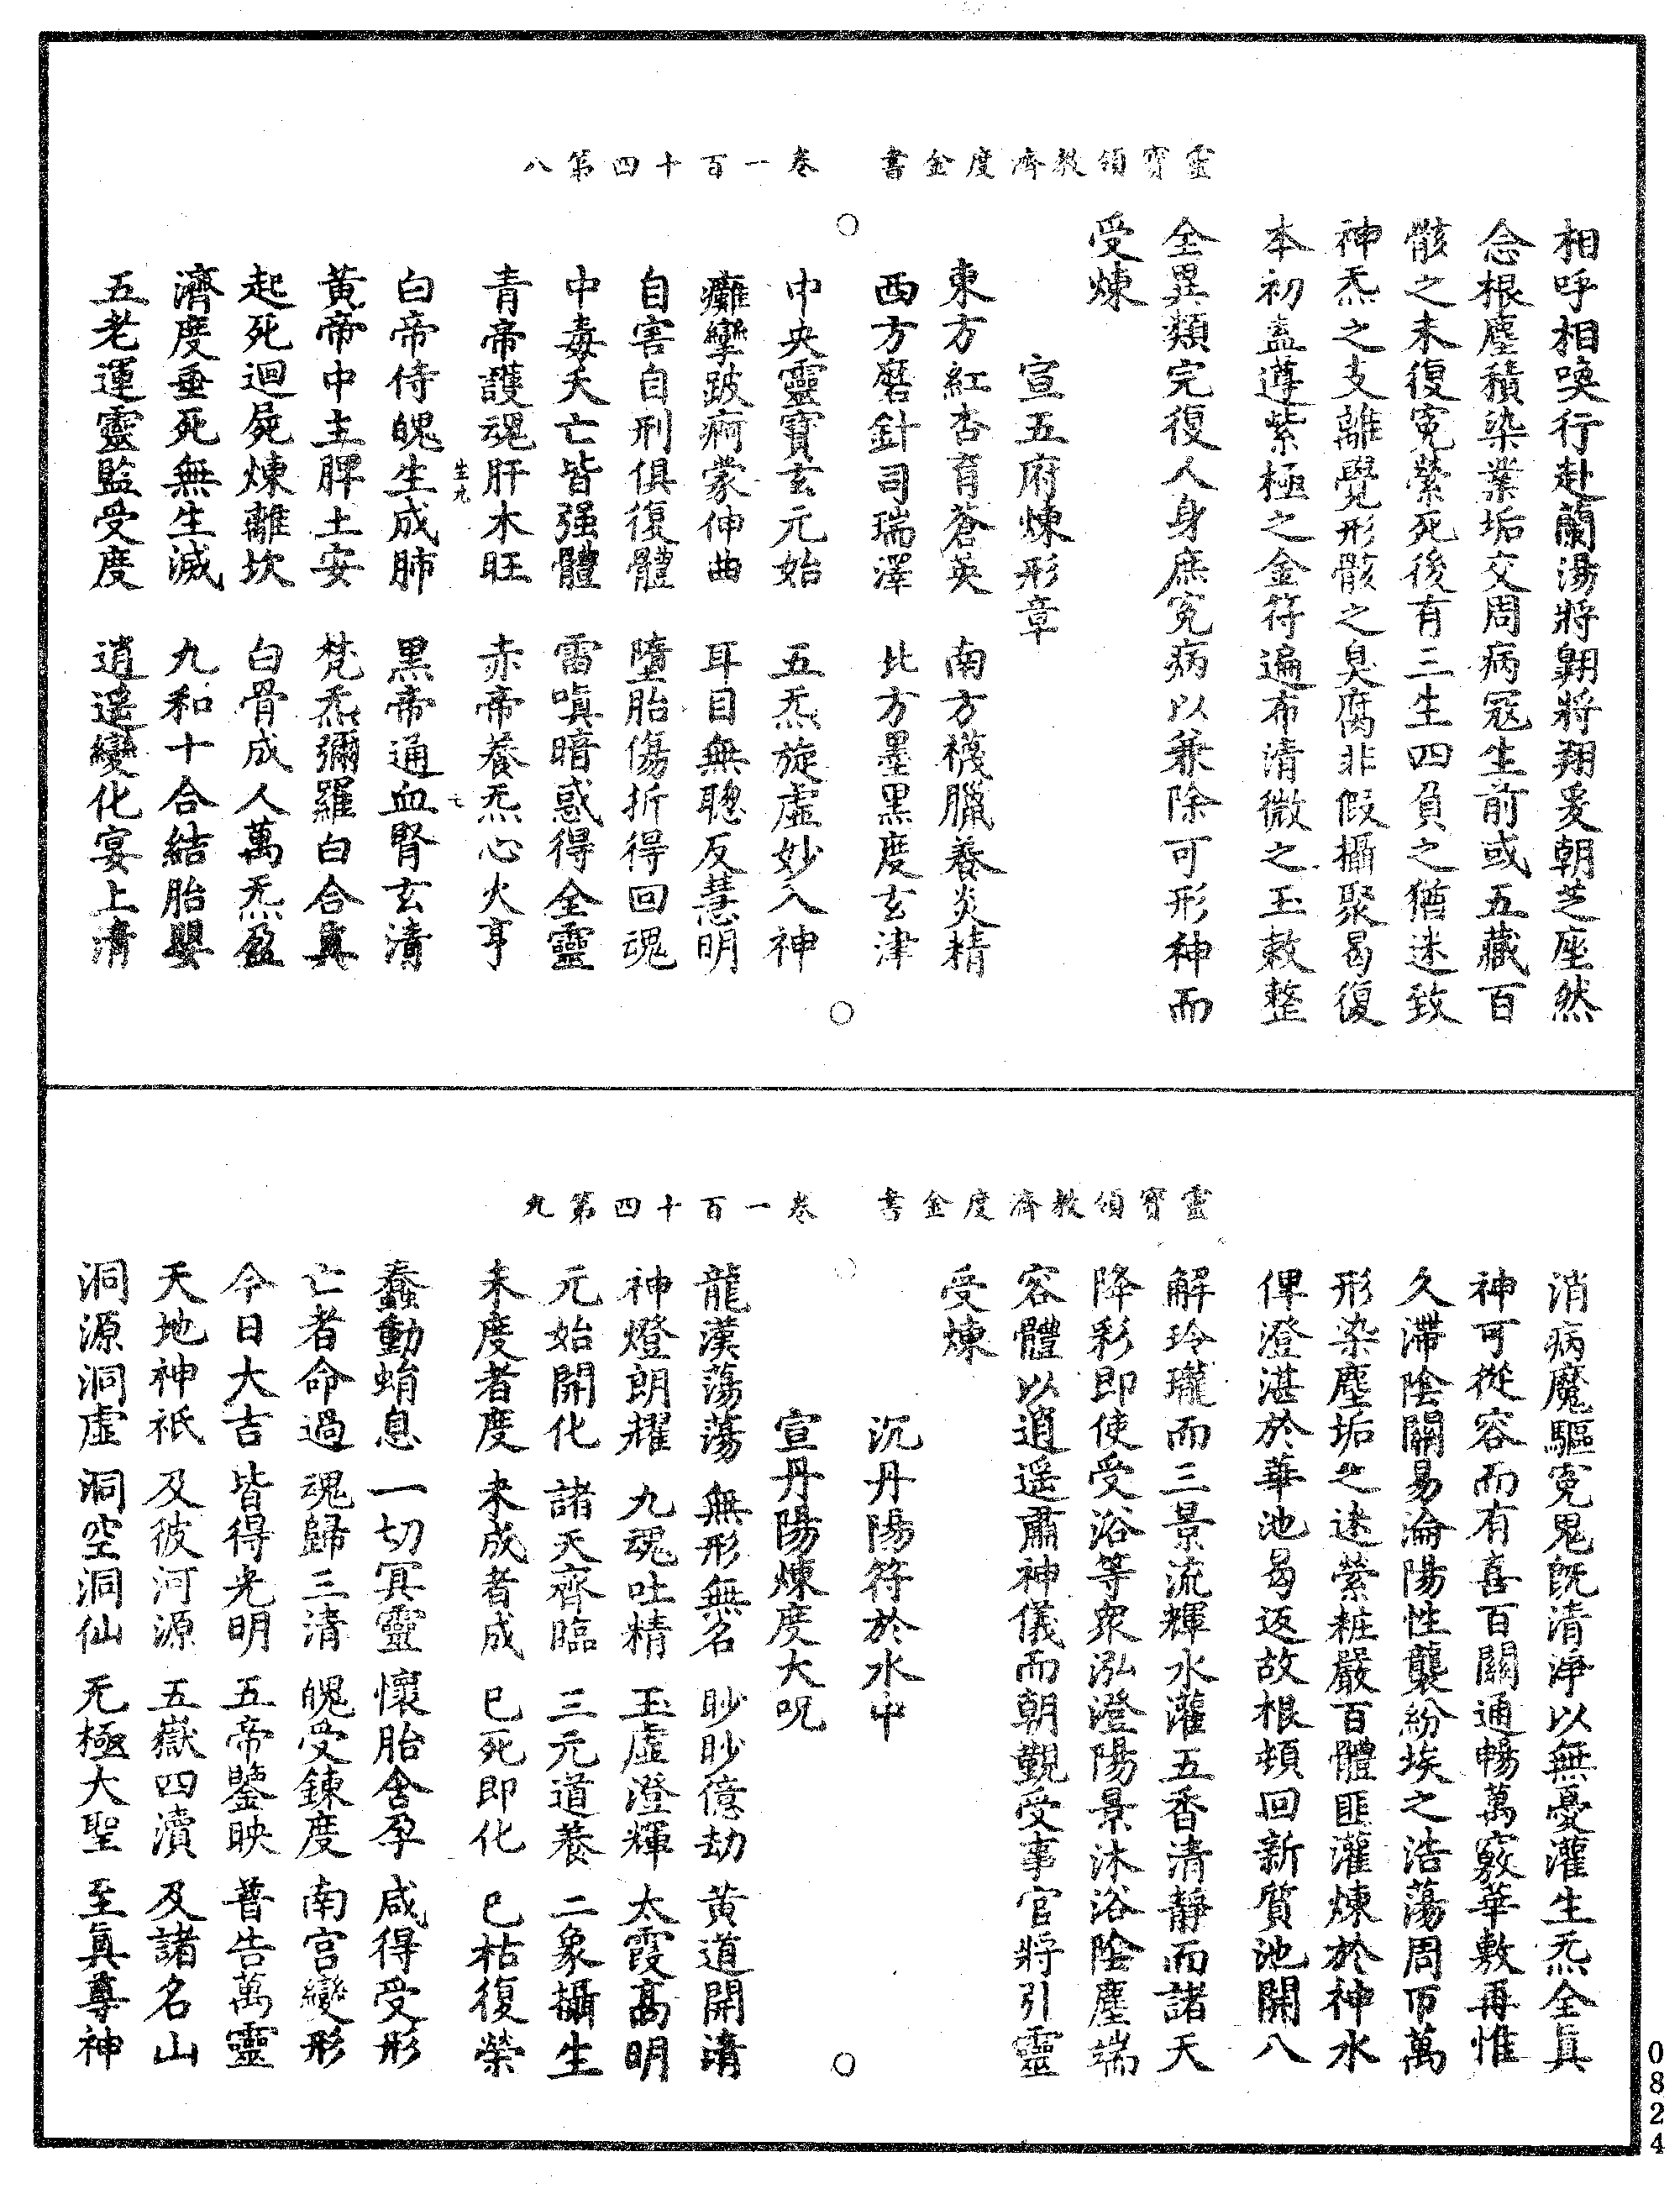 靈寶領教濟度金書 卷一百十四第八
相呼相喚行赴蘭湯將翺將翔爰朝芝座然
念根塵積染業垢交周病冦生前或五藏百
骸之未復寃縈死後有三生四負之猶迷致
神炁之支離覺形骸之臭腐非假攝聚曷復
本初盍遵紫極之金符遍布清微之玉敕整
全異類完復人身庶寃病以兼除可形神而
受煉
宣五府煉形章
東方紅杏育蒼英 南方襪臘養炎精
西方磨針司瑞澤 北方墨黑度玄津
中央靈寶玄元始 五炁旋虛妙入神
癱攣跛痾蒙伸曲 耳目無聰反慧明
自害自刑俱復體 墮胎傷折得回魂
中毒夭亡皆强體 雷嗔暗惑得全靈
青帝護魂肝木旺 赤帝養炁心火亨
生九 七
白帝侍魄生成肺 黑帝通血腎玄清
黃帝中主脾土安 梵炁彌羅白合真
起死迴屍煉離坎 白骨成人萬炁盈
濟度垂死無生滅 九和十合結胎嬰
五老運靈監受度 逍遥變化宴上清
靈寶領教濟度金書 卷一百十四第九
消病魔驅寃鬼旣清淨以無憂灌生炁全真
神可從容而有喜百關通暢萬竅華敷再惟
久滯陰關易淪陽性襲紛埃之浩蕩周帀萬
形染塵垢之迷縈粧嚴百體匪灌煉於神水
俾澄湛於華池曷返故根頓回新質池開八
解玲瓏而三景流輝水灌五香清靜而諸天
降彩即使受浴等衆泓澄陽景沐浴陰塵端
容體以逍遥肅神儀而朝覲受事官將引靈
受煉
沉丹陽符於水中
宣丹陽煉度大呪
龍漢蕩蕩 無形無名 眇眇億劫 黃道開清
神燈朗耀 九魂吐精 玉虛澄輝 太霞高明
元始開化 諸天齊臨 三元道養 二象攝生
未度者度 未成者成 已死即化 已枯復榮
蠢動蛸息 一切冥靈 懷胎含孕 咸得受形
亡者命過 魂歸三清 魄受鍊度 南宫變形
今日大吉 皆得光明 五帝鑒映 普告萬靈
天地神祇 及彼河源 五嶽四瀆 及諸名山
洞源洞虛 洞空洞仙 无極大聖 至真尊神
0824